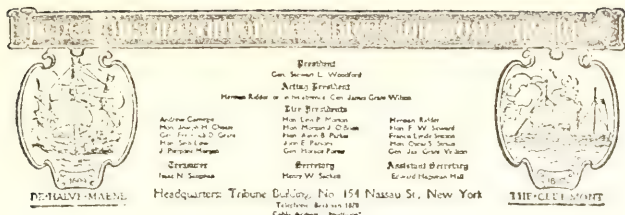 President
Gen. Stewart L. Woodford
Acting President
Herman Ridder or in his absence Gen. James Grant Wilson
Vice Presidents
Andrew Carnegie
Hon. Joseph H. Choate
Gen. Frederick D. Grant
Hon. Seth Low
J. Pierpont Morgan
Hon. Levi P. Morton
Hon. Morgan J. O'Brien
Hon. Alton B. Parker
John E. Parsons
Gen. Horace Porter
Herman Ridder
Hon. F. W. Seward
Francis Lynde Stetson
Hon. Oscar S. Straus
Gen. Jas. Grant Wilson
Treasurer
Isaac N. Seligman
Secretary
Henry W. Sackett
Assistant Secretary
Edward Hagaman Hall
1609
DE·HALVE·MAENE
Headquarters: Tribune Building, No. 154 Nassau St., New York
THE·CLERMONT
Telephone, Beekman
Cable Address